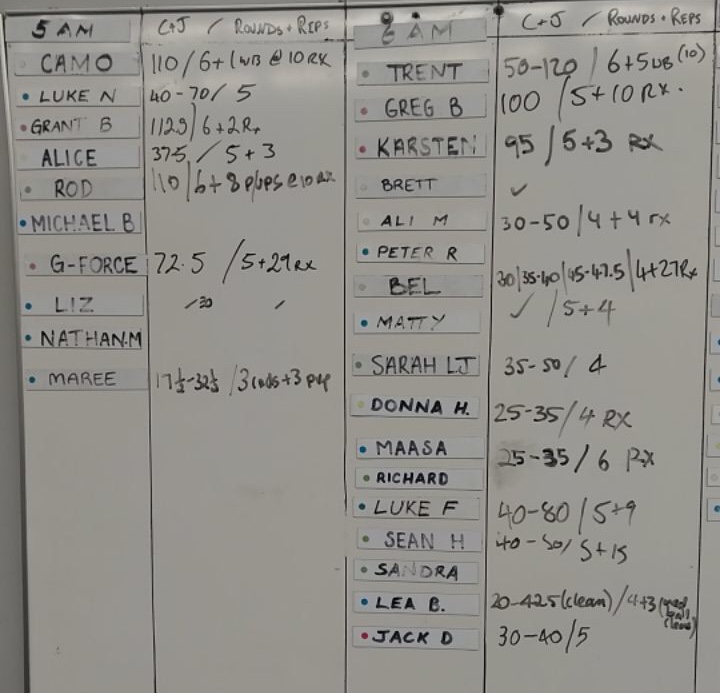 5 AM C+J / ROUNDS + REPS
CAMO 110 / 6 + 1 WB @ 10 RX
LUKE N 40-70 / 5
GRANT B 112.5 / 6+2 Rx
ALICE 37.5 / 5 + 3
ROD 110 / 6 + 8
MICHAEL B
G-FORCE 72.5 / 5+29 RX
LIZ 30 /
NATHAN.M
MAREE 17½-32½ / 3 rnds + 3
6 AM C+J / ROUNDS + REPS
TRENT 50-120 / 6+5 WB (10)
GREG B 100 / 5 + 10 RX.
KARSTEN 95 / 5+3 RX
BRETT ✓
ALI M 30-50 / 4 + 4 rx
PETER R
BEL 30 / 35-40 / 45-47.5 / 4+27 Rx
MATTY ✓ / 5+4
SARAH LJ 35-50 / 4
DONNA H. 25-35 / 4 RX
MAASA 25-35 / 6 RX
RICHARD
LUKE F 40-80 / 5+9
SEAN H 40-50 / 5+15
SANDRA
LEA B. 20-42.5 (clean) / 4+3 (med ball cleans)
JACK D 30-40 / 5